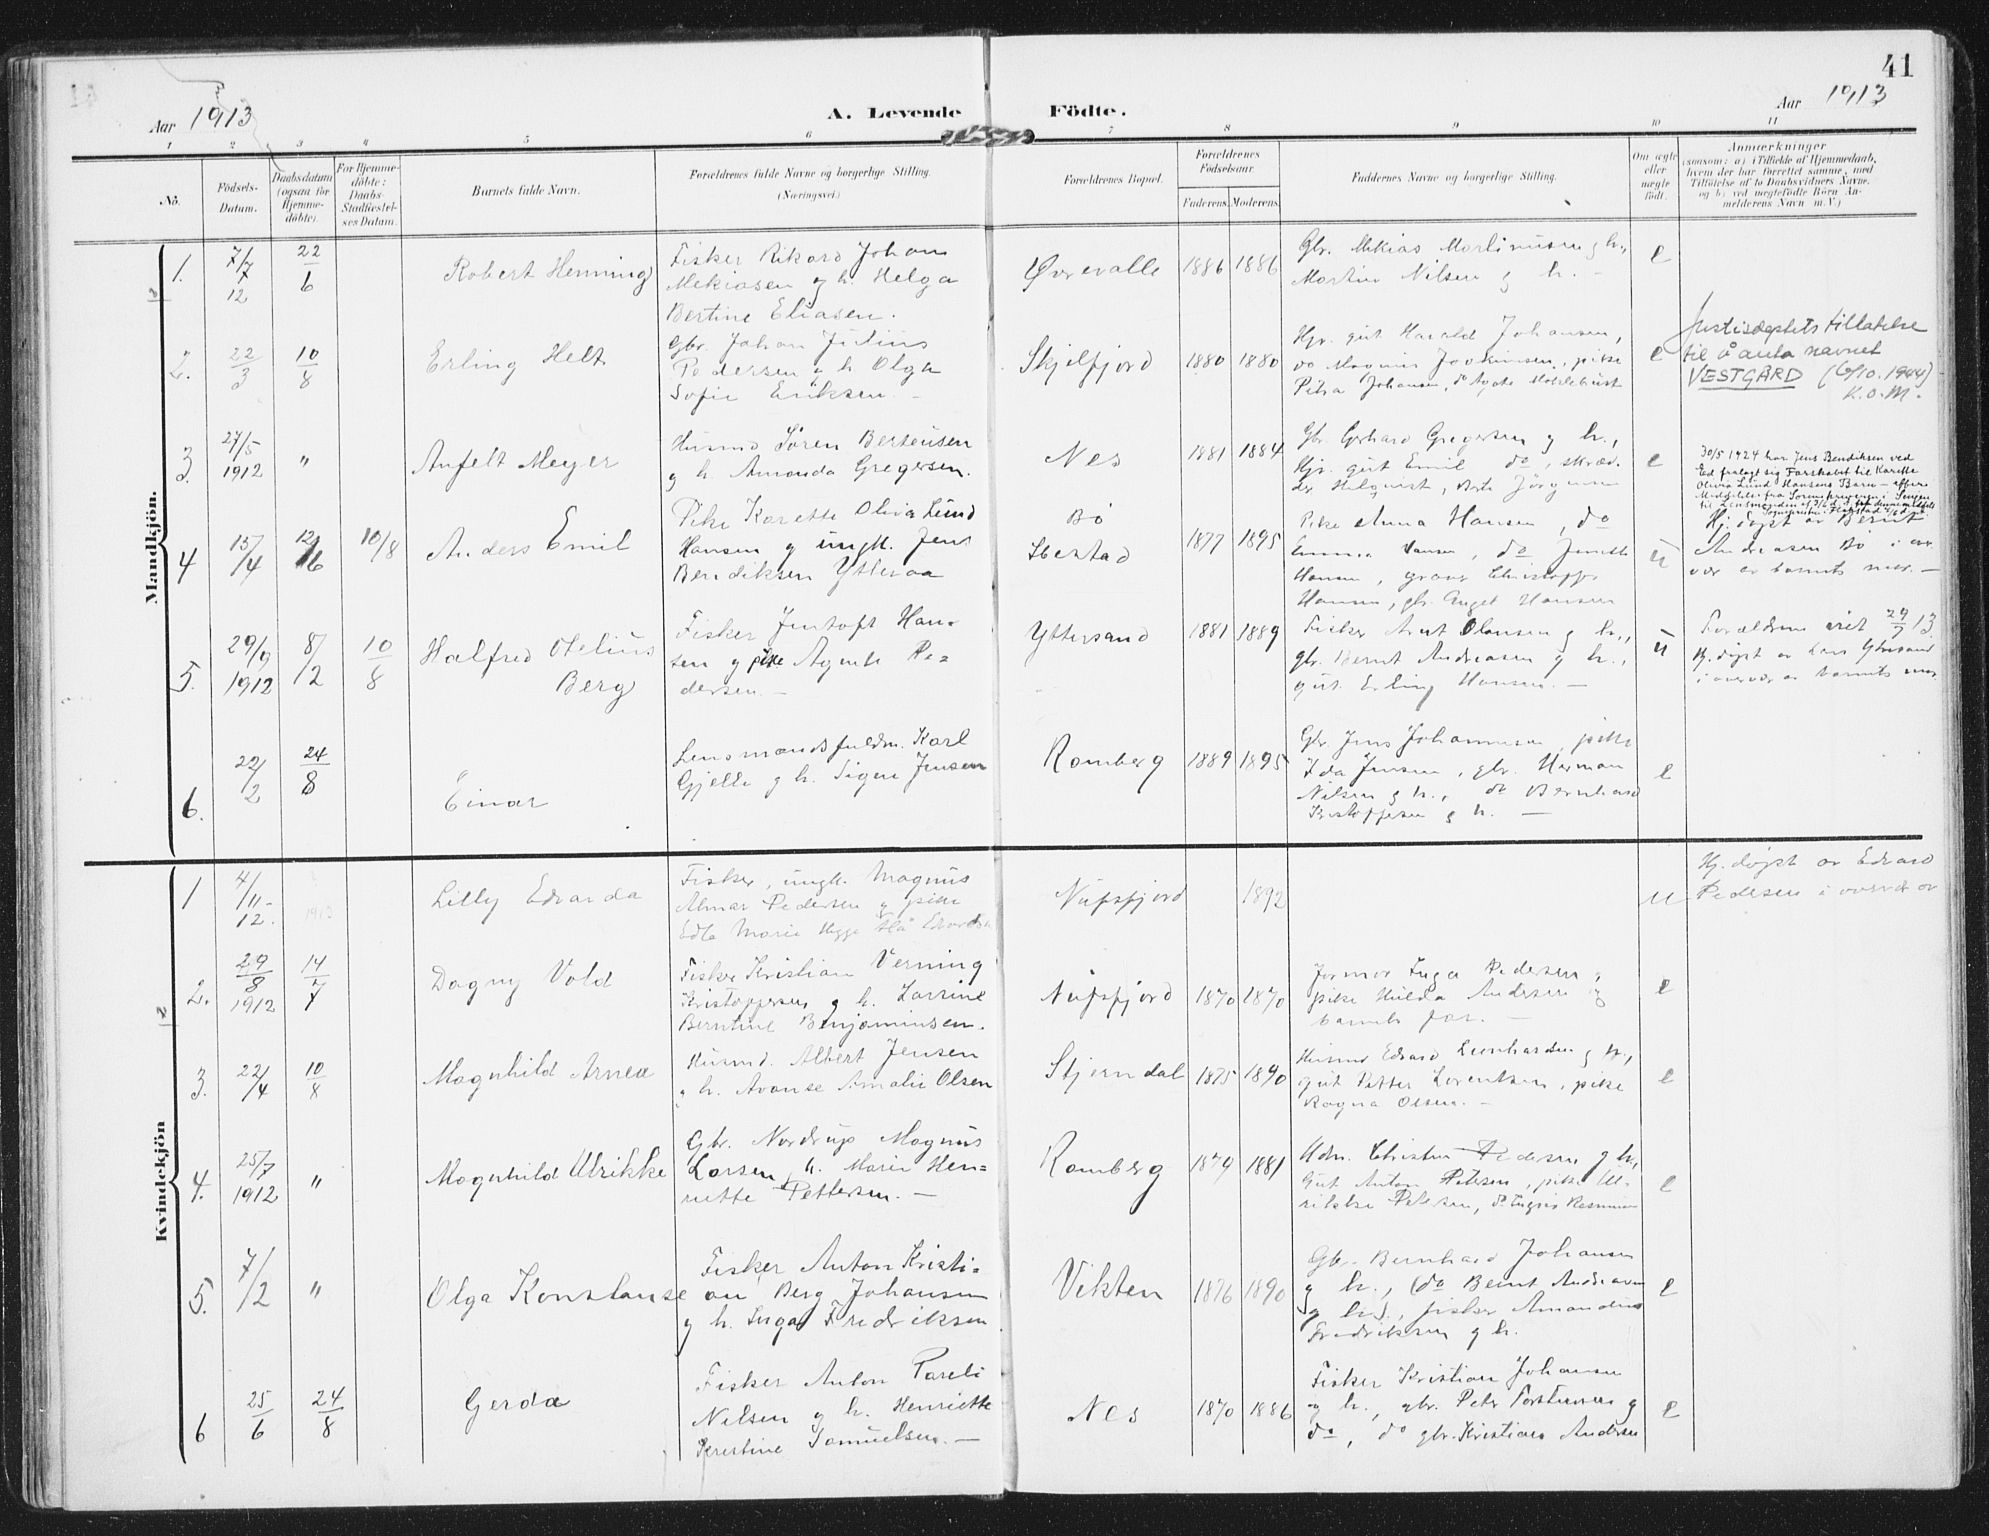 41
Aar 1913
A. Levende Födte.
Aar 1913
1 2 3 4 5 6 7 8 9 10 11
No.
Födsels-
Datum.
Daabsdatum
(ogsaa for
Hjemme-
döbte).
For Hjemme-
döbte:
Daabs
Stadfæstel-
ses Datum.
Barnets fulde Navn.
Forældrenes fulde Navne og borgerlige Stilling.
(Næringsvei.)
Forældrenes Bopæl.
Forældrenes
Födselsaar.
Faderens. Moderens.
Faddernes Navne og borgerlige Stilling.
Om ægte
eller
uægte
födt.
Anmærkninger
(saasom: a) i Tilfælde af Hjemmedaab,
hvem der har forrettet samme, med
Tilföielse af to Daabsvidners Navne,
og b) ved uægtefödte Börn An-
melderens Navn m. V.)
Mandkjön.
1. 7/7 12 22/6 Robert Henning
Fisker Rikard Johan
Mekiasen g h. Helga
Bertine Eliasen.
Øvrevalle 1886 1886
Gbr. Mekias Martinusen g h.,
Martin Nilsen g h. –
e
2. 22/3 10/8 Erling Helt
Gbr. Johan Julius
Pedersen g h. Olga
Sofie Eriksen. –
Skjelfjord 1880 1880
Hjv. gut Harald Johansen,
do Magnus Joakimsen, pike
Petra Johansen, do Agate
e
Justisdeptets tillatelse
til å anta navnet
VESTGÅRD (6/10.1944)
K.O.M.
3. 27/5 1912 " Anfelt Meyer
Husmd Søren Berteusen
g h. Amanda Gregersen.
Nes 1881 1884
Gbr. Gerhard Gregersen g h.,
Hjv. gut Emil do, skræd-
der
e
4 15/4 12/6 10/8 Anders Emil
Pike Karette Oliva Lund
Hansen g ungk. Jens
Bendiksen Ytteraa
Bø
Ibestad 1877 1895
Pike Anna Hansen, do
Emma Hansen, do
Hansen, graver Christoffer
Hansen, gbr. Angel Hansen
u
30/5 1924 har Jens Bendiksen ved
Ed fralagt sig Farskabet til Karette
Olivia Lund Hansens Barn – efter
Hj. døpt av Bernt
Andreasen Bø i over-
vær av barnets mor. –
5. 29/9 1912 8/12 10/8 Halfred Otelius
Berg
Fisker Jentoft Han-
sen g pike Agnete Pe-
dersen. –
Yttersand 1881 1889
Fisker Arnt Olausen g h.,
gbr. Bernt Andreasen g h.,
gut Erling Hansen. –
u
Forældrene viet 29/7 13.
Hj. døpt av Lars Yttersand
i overvær av barnets mor
6. 22/2 24/8 Einar
Lensmandsfuldm. Karl
Gjelle g h. Signe Jensen
Ramberg 1889 1895
Gbr. Jens Johannesen, pike
Ida Jensen, gbr. Herman
Nilsen g h., do Bernhard
Kristoffersen g h. –
e
Kvindekjön
1 4/11-12. 1913 Lilly Edvarda
Fisker, ungk. Magnus
Almar Pedersen g pike
Edle Marie Edvardsen
Nufsfjord 1892
u
Hj. døpt av Edvard
Pedersen i overvær av
2. 29/8 1912 14/7 Dagny Vold
Fisker Kristian Verning
Kristoffersen g h. Lavrine
Berntine Benjaminsen.
Nufsfjord 1870 1870
Jormor Inga Pedersen g
pike Hilda Andersen g
barnets far. –
e
3. 22/4 10/8 Magnhild Arnea
Husmd. Albert Jensen
g h. Avanse Amalie Olsen
Stjerndal 1875 1890
Husmd Edvard Leonhardsen g h.,
gut Petter Lorentsen, pike
Ragna Olsen. –
e
4. 25/7 1912 " Magnhild Ulrikke
Gbr. Nordrup Magnus
Larsen, h. Marie Hen-
riette Pettersen. –
Ramberg 1879 1881
Christen Pedersen g h,
Gut Anton Petersen, pike Ul-
rikke Petersen, do Ingrid Rasmussen
e
5. 7/2 " Olga Konstanse
Fisker Anton Kristi-
an Berg Johansen
g h. Inga Fredriksen
Vikten 1876 1890
Gbr. Bernhard Johansen
g h., (do Bernt Andreasen
g h.), fisker Amandus
Fredriksen g h.
e
6 25/6 24/8 Gerda
Fisker Anton Pareli
Nilsen g h. Henriette
Kristine Samuelsen. –
Nes 1870 1886
Fisker Kristian Johansen
g h., gbr. Peter Torstensen g
do, do gbr. Kristian Andersen
e